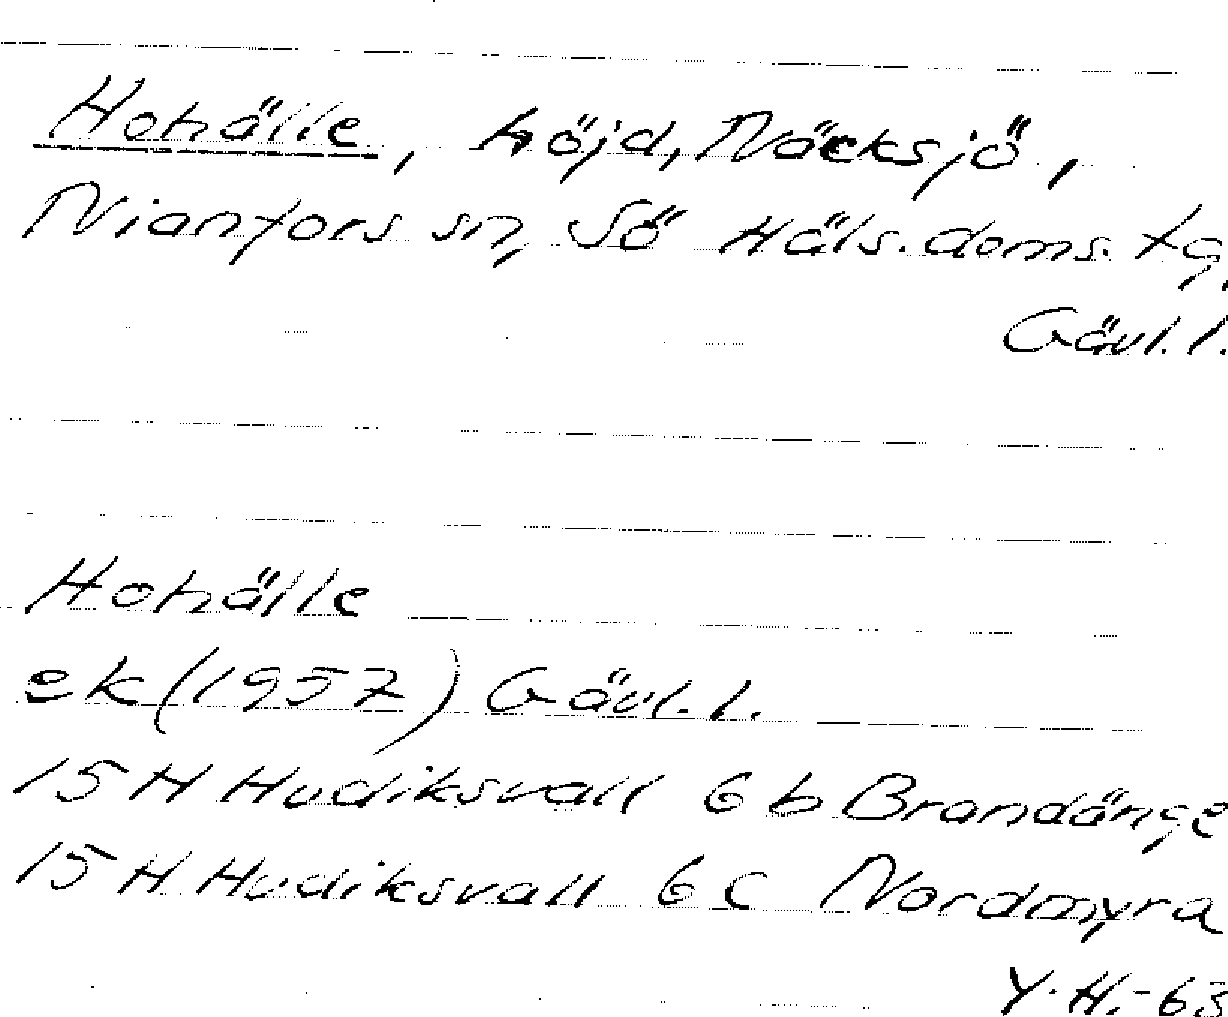 Hohälle, höjd, Näcksjö,
Nianfors sn, Sö Häls. doms. tg.
Gävl. l.
Hohälle
ek (1957) Gävl. l.
15 H Hudiksvall 6 b Brandänge
15 H Hudiksvall 6 c Nordmyra
Y. H. - 63